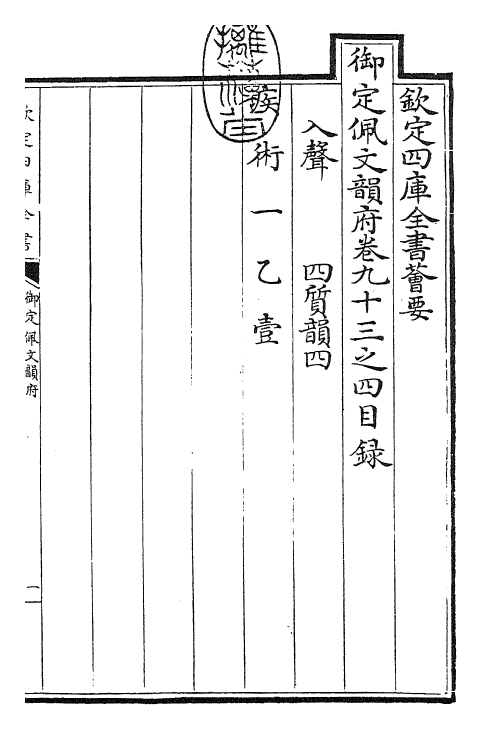 欽定四庫全書薈要
御定佩文韻府卷九十三之四目録
入聲　四質韻四
術一乙壹
欽定四庫全書
御定佩文韻府
一